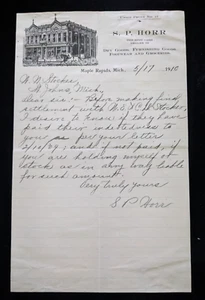 S. P. HORR
DRY GOODS, FURNISHING GOODS,
FOOTWEAR AND GROCERIES.
Maple Rapids, Mich., 5/17 1910
St Johns, Mich
Dear sir:- Before making final
settlement with
I desire to know if they have
paid their indebtedness to
you as per your letter
2/10/09, and if not paid, if
you are holding myself or
stock as in any way liable
for such amount.
Very truly yours
S P Horr